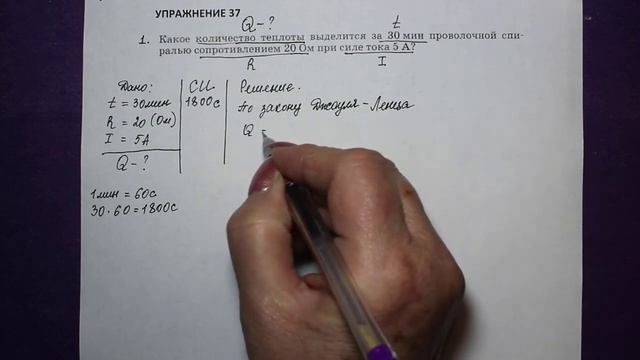 УПРАЖНЕНИЕ 37
Q - ?
t
1. Какое количество теплоты выделится за 30 мин проволочной спи-
ралью сопротивлением 20 Ом при силе тока 5 А?
R
I
Дано:
t = 30мин
R = 20 (Ом)
I = 5А
Q - ?
СИ
1800с
Решение.
По закону Джоуля - Ленца
Q =
1мин = 60с
30 · 60 = 1800с